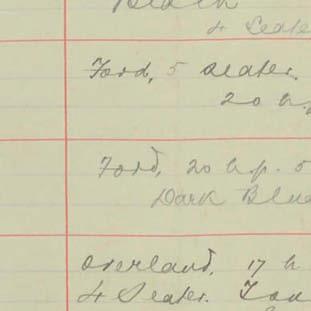 Black
4 Seate
Ford, 5 seater.
20 h.
Ford, 20 h.p. 5
Dark Blue
Overland, 17 h
4 Seater.